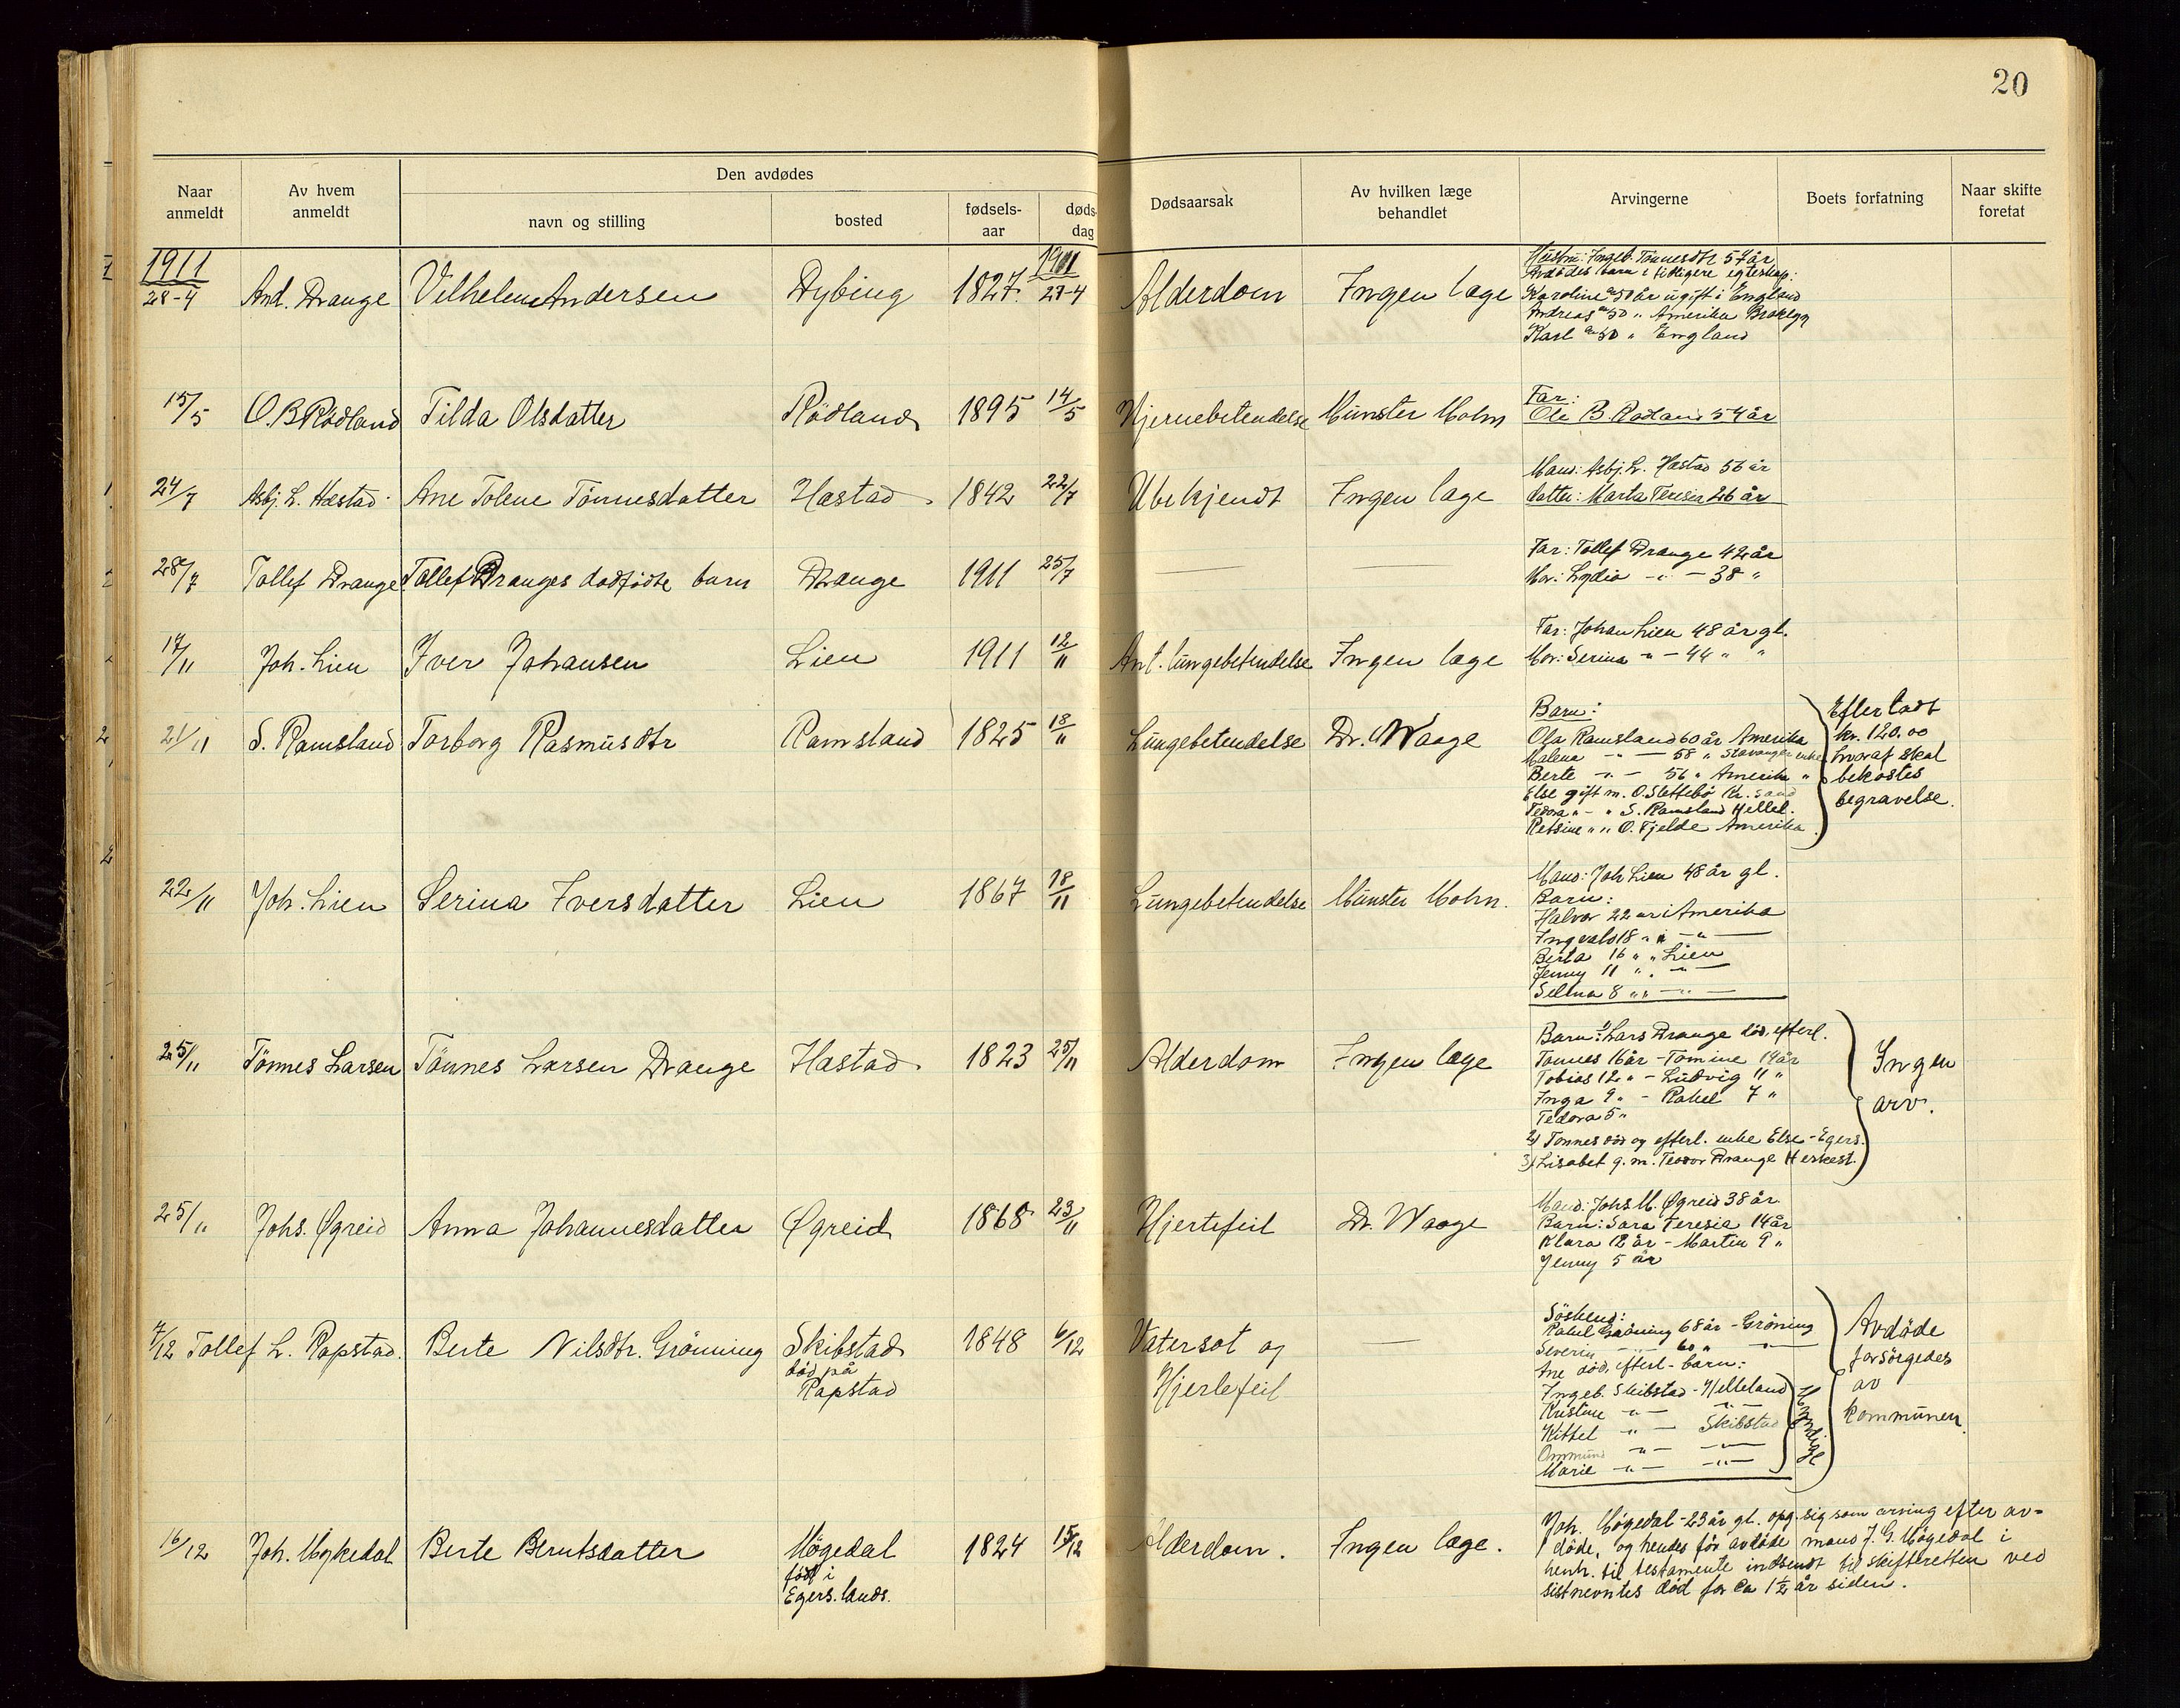 20
Den avdødes
Naar anmeldt
Av hvem anmeldt
navn og stilling
bosted
fødsels-aar
døds-dag
Dødsaarsak
Av hvilken læge behandlet
Arvingerne
Boets forfatning
Naar skifte foretat
1911 1911
28-4 And. Drange Vilhelm Andersen Dybing 1827 27-4 Alderdom Ingen læge
Hustru: Ingeb. Tönnesdtr 54 år
Avdödes barn i tidligere egteskap:
Karoline ca 50 år ugift i England
Andreas ca 50 " Amerika
Karl ca 50 " England
15/5 O. B Rödland Tilda Olsdatter Rödland 1895 14/5 Hjernebetendelse Munster Mohn
Far:
Ole B. Rödland 54 år
24/7 Asbj. L. Hæstad Ane Tolene Tönnesdatter Hæstad 1842 22/7 Ubekjendt Ingen læge
Mand: Asbj. L. Hæstad 56 år
datter: Marta Teresia 26 år
28/7 Tollef Drange Tollef Dranges dödfödte barn Drange 1911 25/7 — —
Far: Tollef Drange 42 år
Mor: Lydia -"- 38 "
17/11 Joh. Lien Iver Johansen Lien 1911 12/11 Ant. lungebetendelse Ingen læge
Far: Johan Lien 48 år gl.
Mor: Serina -"- 44 " "
21/11 S. Ramsland Torborg Rasmusdtr Ramsland 1825 18/11 Lungebetendelse Dr. Waage
Barn:
Ola Ramsland 60 år Amerika
Malena -"- 58 " Stavanger enke
Berte -"- 56 " Amerika "
Else gift m. O. Slettebö Kr.sand
Tedora " - " S. Ramsland Hellel.
Retsine " " O. Fjelde Amerika
Efterladt
kr. 120.00
hvoraf skal
bekostes
begravelse.
22/11 Joh. Lien Serina Iversdatter Lien 1867 18/11 Lungebetendelse Munster Mohn.
Mand: Joh Lien 48 år gl.
Barn:
Halvor 22 år i Amerika
Ingvald 18 " " -"-
Berta 16 " " Lien
Jenny 11 " " -"-
Selma 8 " " -"-
25/11 Tönnes Larsen Tönnes Larsen Drange Hæstad 1823 25/11 Alderdom Ingen læge
Barn: 1) Lars Drange död, efterl.
Tönnes 16 år - Tomine 14 år
Tobias 12 " - Ludvig 11 "
Inga 9 " - Rakel 7 "
Tedora 5 "
2) Tönnes död og efterl. enke Else - Egers.
3) Lisabet g. m. Teodor Drange Heskest.
Ingen
arv.
25/11 Johs. Øgreid Anna Johannesdatter Øgreid 1868 23/11 Hjertefeil Dr. Waage
Mand: Johs M. Øgreid 38 år
Barn: Sara Teresia 14 år
Klara 12 år - Martin 9 "
Jenny 5 år
7/12 Tollef L. Rapstad. Berte Nilsdtr. Grönning Skibstad 1848 6/12 Vatersot og —
död på
Rapstad
Hjertefeil
Söskend:
Rakel Gröning 68 år - Gröning
Severin -"- 60 " -"-
Ane död, efterl - barn:
Ingeb. Skibstad - Helleland
Kristine -"- -"-
Kittel -"- Skibstad
Ommund -"- -"-
Marie -"- -"-
Myndige
Avdöde
forsörgedes
av
kommunen.
16/12 Joh. Mykedal Berte Berntsdatter Mögedal 1824 15/12 Alderdom. Ingen læge.
född i
Egers. lands.
Joh. Mögedal - 23 år gl. opg. sig som arving efter av-
döde, og hendes för avdöde mand J. G. Mögedal i
henh. til testamente indsendt til skifteretten ved
sistnevntes död for ca 1½ år siden.